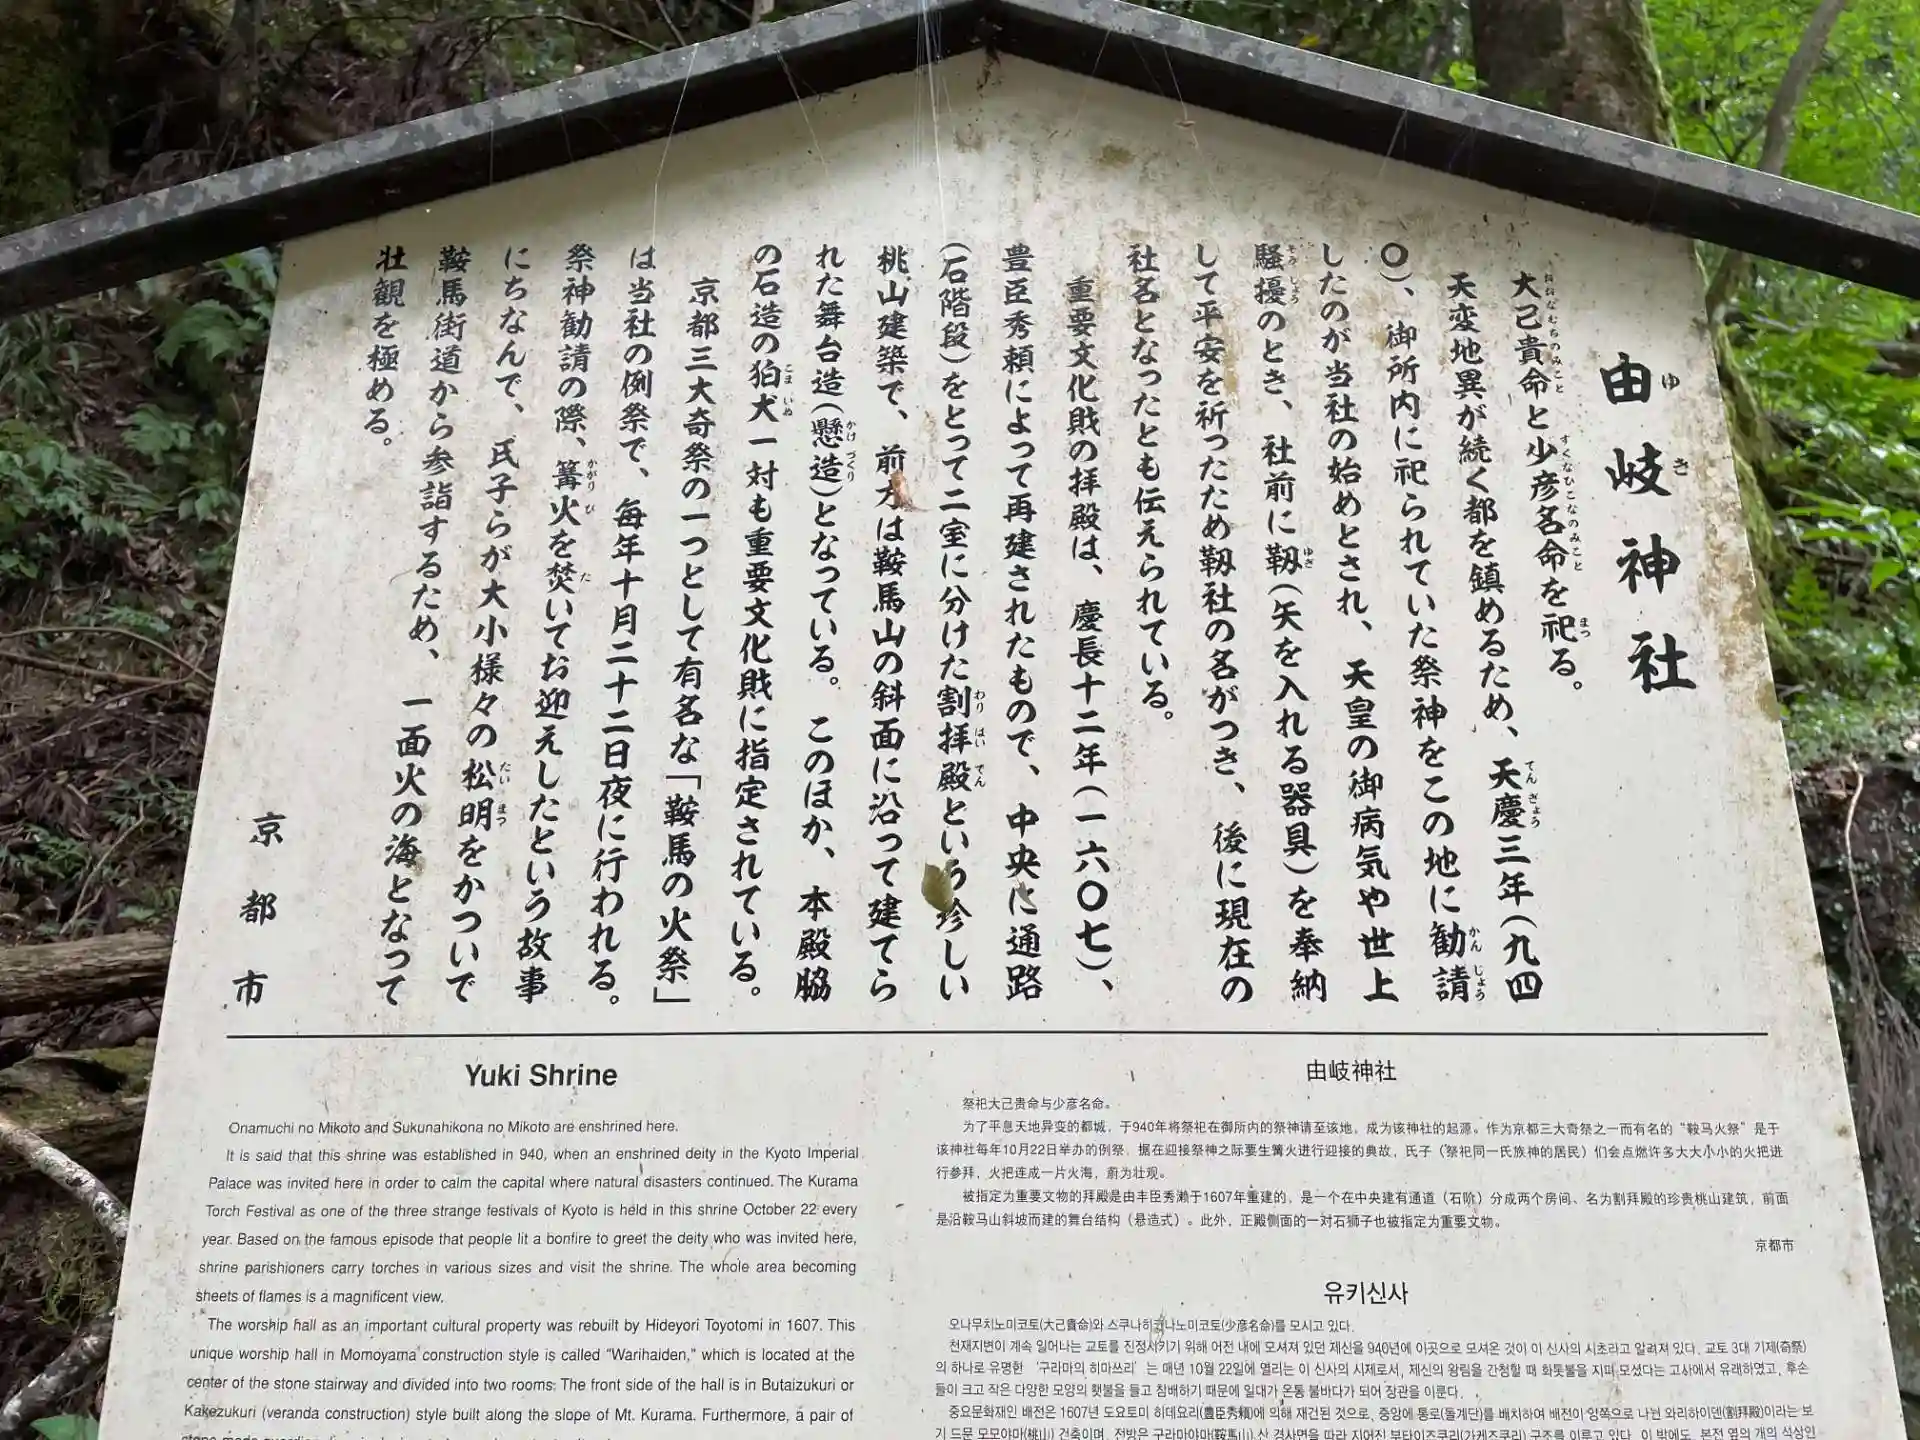 由岐神社
ゆき
大己貴命と少彦名命を祀る。
天変地異が続く都を鎮めるため、天慶三年(九四
〇)、御所内に祀られていた祭神をこの地に勧請
したのが当社の始めとされ、天皇の御病気や世上
騒擾のとき、社前に靱(矢を入れる器具)を奉納
して平安を祈ったため靱社の名がつき、後に現在の
社名となったとも伝えられている。
重要文化財の拝殿は、慶長十二年(一六〇七)、
豊臣秀頼によって再建されたもので、中央に通路
(石階段)をとって二室に分けた割拝殿という珍しい
桃山建築で、前方は鞍馬山の斜面に沿って建てら
れた舞台造(懸造)となっている。このほか、本殿脇
の石造の狛犬一対も重要文化財に指定されている。
京都三大奇祭の一つとして有名な「鞍馬の火祭」
は当社の例祭で、毎年十月二十二日夜に行われる。
祭神勧請の際、篝火を焚いてお迎えしたという故事
にちなんで、氏子らが大小様々の松明をかついで
鞍馬街道から参詣するため、一面火の海となって
壮観を極める。
京都市
Yuki Shrine
Onamuchi no Mikoto and Sukunahikona no Mikoto are enshrined here.
It is said that this shrine was established in 940, when an enshrined deity in the Kyoto Imperial
Palace was invited here in order to calm the capital where natural disasters continued. The Kurama
Torch Festival as one of the three strange festivals of Kyoto is held in this shrine October 22 every
year. Based on the famous episode that people lit a bonfire to greet the deity who was invited here,
shrine parishioners carry torches in various sizes and visit the shrine. The whole area becoming
sheets of flames is a magnificent view.
The worship hall as an important cultural property was rebuilt by Hideyori Toyotomi in 1607. This
unique worship hall in Momoyama construction style is called "Warihaiden," which is located at the
center of the stone stairway and divided into two rooms. The front side of the hall is in Butaizukuri or
Kakezukuri (veranda construction) style built along the slope of Mt. Kurama. Furthermore, a pair of
由岐神社
祭祀大己贵命与少彦名命。
为了平息天地异变的都城，于940年将祭祀在御所内的祭神请至该地，成为该神社的起源。作为京都三大奇祭之一而有名的“鞍马火祭”是于
该神社每年10月22日举办的例祭，据在迎接祭神之际要生篝火进行迎接的典故，氏子（祭祀同一氏族神的居民）们会点燃许多大大小小的火把进
行参拜，火把连成一片火海，蔚为壮观。
被指定为重要文物的拜殿是由丰臣秀濑于1607年重建的，是一个在中央建有通道（石阶）分成两个房间、名为割拜殿的珍贵桃山建筑，前面
是沿鞍马山斜坡而建的舞台结构（悬造式）。此外，正殿侧面的一对石狮子也被指定为重要文物。
京都市
유키신사
오나무치노미코토(大己貴命)와 스쿠나히코나노미코토(少彦名命)를 모시고 있다.
천재지변이 계속 일어나는 교토를 진정시키기 위해 어전 내에 모셔져 있던 제신을 940년에 이곳으로 모셔온 것이 이 신사의 시초라고 알려져 있다. 교토 3대 기제(奇祭)
의 하나로 유명한 '구라마의 히마쓰리' 는 매년 10월 22일에 열리는 이 신사의 시제로서, 제신의 왕림을 간청할 때 화톳불을 지펴 모셨다는 고사에서 유래하였고, 후손
들이 크고 작은 다양한 모양의 횃불을 들고 참배하기 때문에 일대가 온통 불바다가 되어 장관을 이룬다.
중요문화재인 배전은 1607년 도요토미 히데요리(豊臣秀頼)에 의해 재건된 것으로, 중앙에 통로(돌계단)를 배치하여 배전이 양쪽으로 나뉜 와리하이덴(割拜殿)이라는 보
기 드문 모모야마(桃山) 건축이며, 전방은 구라마야마(鞍馬山) 산 경사면을 따라 지어진 부타이즈쿠리(가케즈쿠리) 구조를 이루고 있다. 이 밖에도, 본전 옆의 개의 석상인